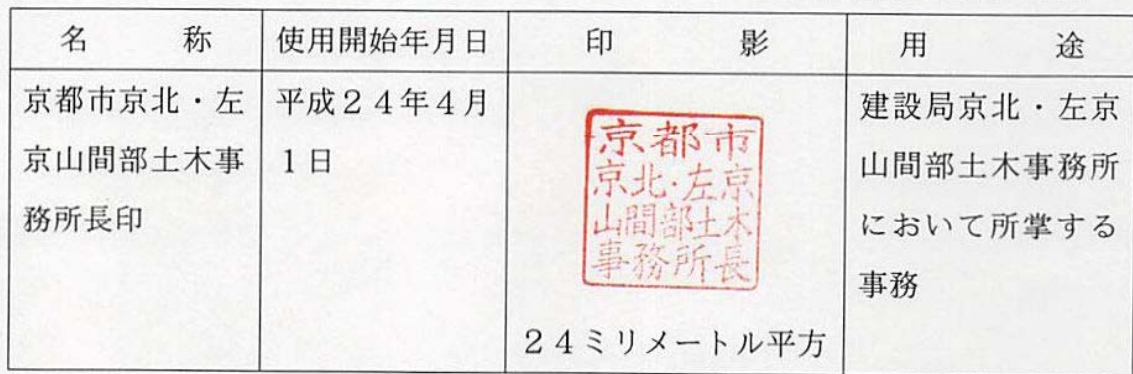 名　　称
使用開始年月日
印　　影
用　　途
京都市京北・左
京山間部土木事
務所長印
平成２４年４月
１日
京都市
京北・左京
山間部土木
事務所長
２４ミリメートル平方
建設局京北・左京
山間部土木事務所
において所掌する
事務